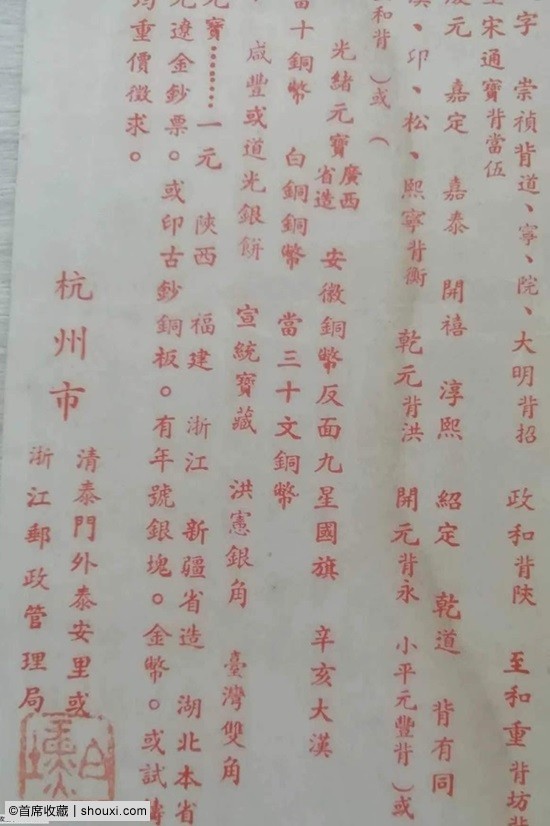 字 崇禎背道、寧、院、大明背招 政和背陝 至和重背坊背
宋通寶背當伍
元 嘉定 嘉泰 開禧 淳熙 紹定 乾道 背有同
、邛、松、熙寧背衡 乾元背洪 開元背永 小平元豐背)或
和背)或(
光緒元寶廣西省造 安徽銅幣反面九星國旗 辛亥大漢
當十銅幣 白銅銅幣 當三十文銅幣
咸豐或道光銀餅 宣統寶藏 洪憲銀角 臺灣雙角
元寶………一元 陝西 福建 浙江 新疆省造 湖北本省
元遼金鈔票。或印古鈔銅板。有年號銀塊。金幣。或試鑄
均重價徵求。
杭州市
清泰門外泰安里或
浙江郵政管理局
©首席收藏 | shouxi.com